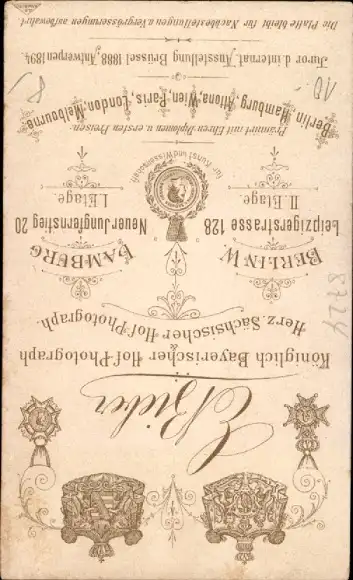 E. Bieber
Königlich Bayerischer Hof-Photograph
&
Herz. Sächsischer Hof-Photograph.
BERLIN W. HAMBURG
Leipzigerstrasse 128 Neuer Jungfernstieg 20
II. Etage. I. Etage.
für Kunst und Wissenschaft
Prämiirt mit Ehren-Diplomen u. ersten Preisen:
Berlin, Hamburg, Altona, Wien, Paris, London, Melbourne.
Juror d. internat. Ausstellung Brüssel 1888, Antwerpen 1894
Die Platte bleibt für Nachbestellungen u. Vergrösserungen aufbewahrt.
8724
10.-